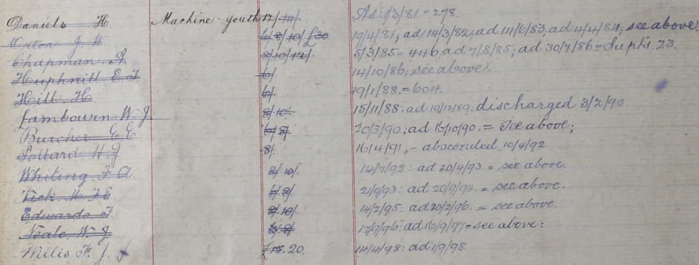 Daniels H Machine youth 12/ 14/ Ad 1/3/81 = 278.
Orton J W 6/ 8/ 10/ £30 10/4/81, ad 14/3/82, ad 111/6/83, ad 4/4/84, see above
Chapman A 8/ 10/ 12/ 5/3/85 = 446 ad 7/8/85, ad 30/7/86 = Supt's 23.
Huphnill E J 6/ 14/10/86, see above.
Hill H 6/ 19/1/88 = 604.
Lambourn W J 8/ 10/ 15/11/88: ad 18/12/89, discharged 3/2/90
Burcher G E 6/ 8/ 20/3/90: ad 15/10/90. = See above;
Pollard H J 8/ 16/4/91, - absconded 10/4/92
Whiting F A 8/ 10/. 14/9/92: ad 20/4/93 = see above.
Vick H F E 6/ 8/ 21/9/93: ad 20/9/94. = see above.
Edwards J. 8/ 10/ 14/2/95: ad 20/2/96. = see above.
Neale W. J 6/ 8/ 17/7/96: ad 16/9/97 = see above:
Willis F. J. 20. 14/4/98: ad 1/9/98